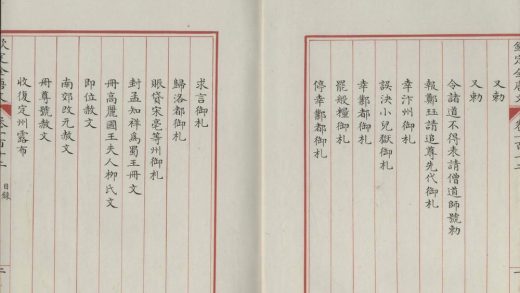 欽定全唐文
又勅
又勅
令諸道不得表請僧道師號勅
報鄭珏請追尊先代御札
幸汴州御札
誤決小兒獄御札
幸鄴都御札
罷般糧御札
停幸鄴都御札
求言御札
歸洛都御札
賑貸宋亳等州御札
封孟知祥爲蜀王冊文
冊高麗國王夫人柳氏文
即位赦文
南郊改元赦文
冊尊號赦文
收復定州露布
欽定全唐文 卷一百十二 目錄 二